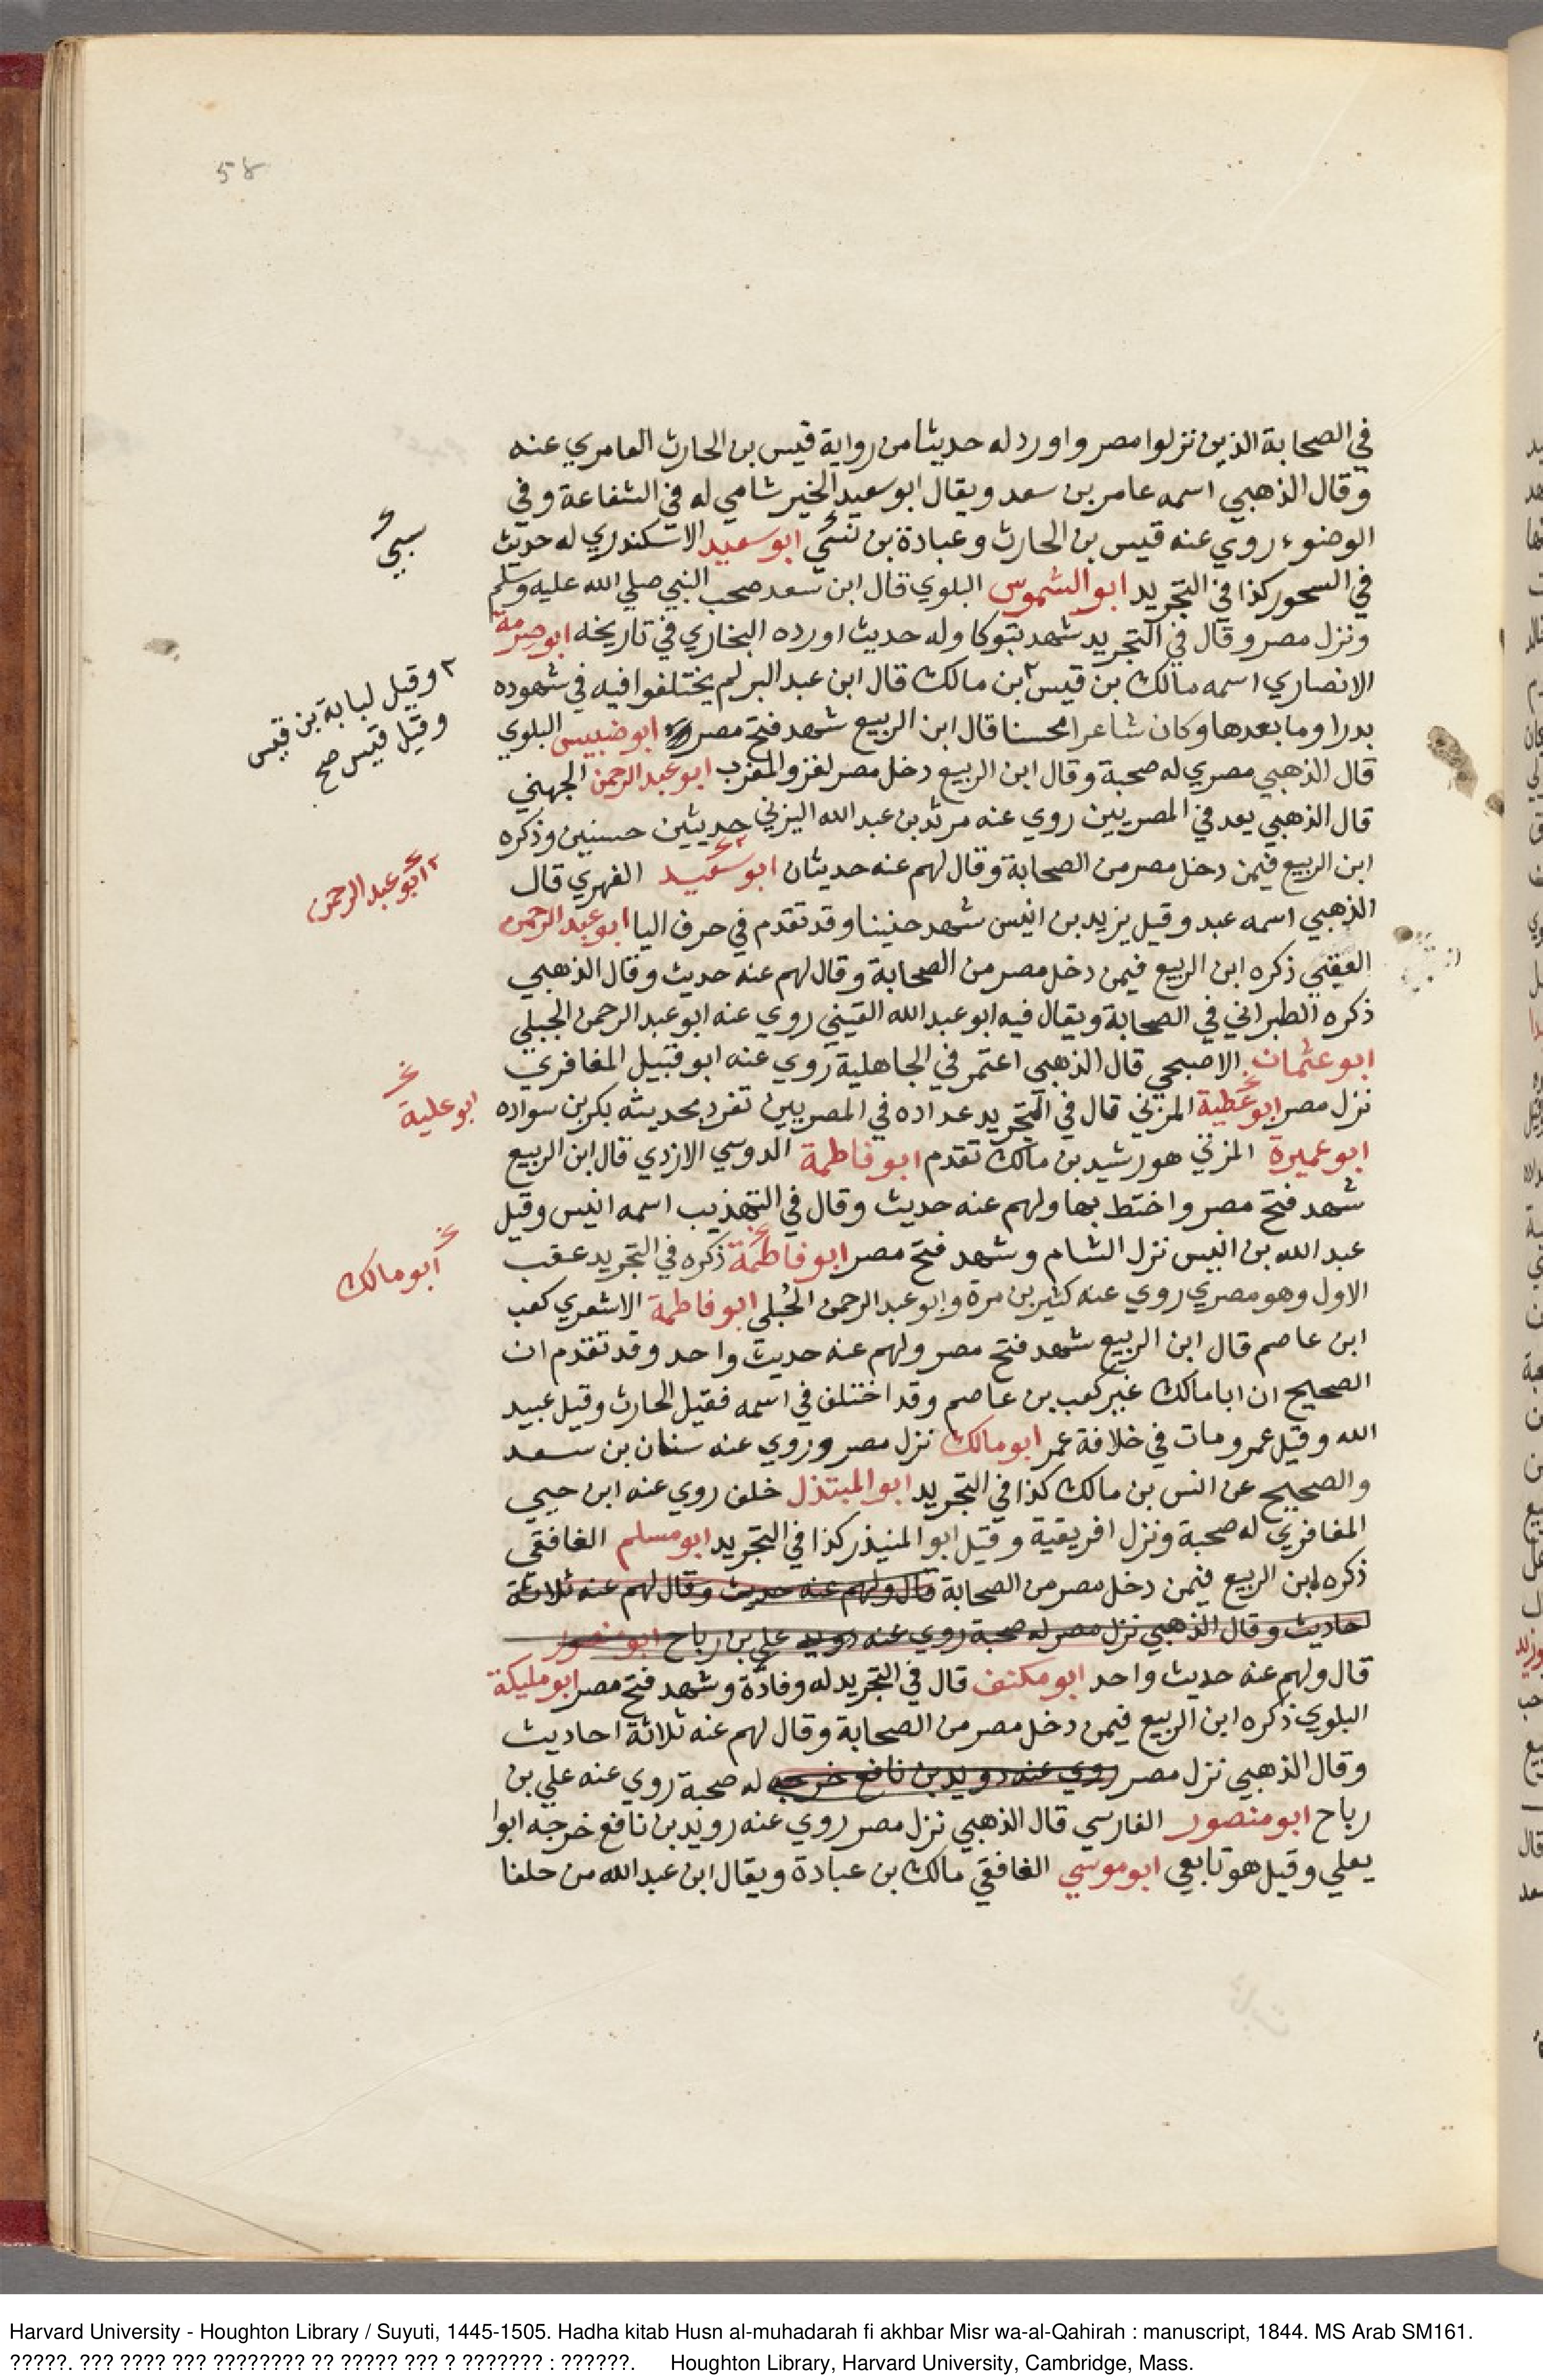 58
في الصحابة الذين نزلوا مصر واورد له حديثا من رواية قيس بن الحارث العامري عنه
وقال الذهبي اسمه عامر بن سعد ويقال ابو سعيد الخير شامي له في الشفاعة وفي
الوضوء روي عنه قيس بن الحارث وعبادة بن نسي ابو سعيد الاسكندري له حديث
في السحور كذا في التجريد ابو الشموس البلوي قال ابن سعد صحب النبي صلي الله عليه وسلم
ونزل مصر وقال في التجريد شهد تبوكا وله حديث اورده البخاري في تاريخه ابو صرمة
الانصاري اسمه مالك بن قيس ٢ ابن مالك قال ابن عبد البر لم يختلفوا فيه في شهوده
٢ وقيل لبابة بن قيس
وقيل قيس صح
بدرا وما بعدها وكان شاعرا محسنا قال ابن الربيع شهد فتح مصر ابو ضبيس البلوي
قال الذهبي مصري له صحبة وقال ابن الربيع دخل مصر لغزو المغرب ابو عبد الرحمن الجهني
قال الذهبي يعد في المصريين روي عنه مرثد بن عبد الله اليزني حديثين حسنين وذكره
ابن الربيع فيمن دخل مصر من الصحابة وقال لهم عنه حديثان ابو سعيد الفهري قال
٢ ابو عبد الرحمن
الذهبي اسمه عبد وقيل يزيد بن انيس شهد حنينا وقد تقدم في حرف اليا ابو عبد الرحمن
القيني ذكره ابن الربيع فيمن دخل مصر من الصحابة وقال لهم عنه حديث وقال الذهبي
ذكره الطبراني في الصحابة ويقال فيه ابو عبد الله القيني روي عنه ابو عبد الرحمن الجبلي
ابو عثمان الاصبحي قال الذهبي اعتمر في الجاهلية روي عنه ابو قبيل المغافري
نزل مصر ابو عطية المزني قال في التجريد عداده في المصريين تفرد بحديثه بكر بن سواده
ابو علية
ابو عميرة المزني هو رشيد بن مالك تقدم ابو فاطمة الدوسي الازدي قال ابن الربيع
شهد فتح مصر واختط بها ولهم عنه حديث وقال في التهذيب اسمه انيس وقيل
عبد الله بن انيس نزل الشام وشهد فتح مصر ابو فاطمة ذكره في التجريد عقب
ابو مالك
الاول وهو مصري روي عنه كثير بن مرة وابو عبد الرحمن الحبلي ابو فاطمة الاشعري كعب
ابن عاصم قال ابن الربيع شهد فتح مصر ولهم عنه حديث واحد وقد تقدم ان
الصحيح ان ابا مالك غير كعب بن عاصم وقد اختلف في اسمه فقيل الحارث وقيل عبيد
الله وقيل عمرو مات في خلافة عمر ابو مالك نزل مصر وروي عنه سنان بن سعد
والصحيح عن انس بن مالك كذا في التجريد ابو المبتذل خلف روي عنه ابن حيي
المغافري له صحبة ونزل افريقية وقيل ابو المنيذر كذا في التجريد ابو مسلم الغافقي
ذكره ابن الربيع فيمن دخل مصر من الصحابة قال ولهم عنه حديث وقال لهم عنه ثلاثة
احاديث وقال الذهبي نزل مصر له صحبة روي عنه دويد علي بن رباح ابو منصور
قال ولهم عنه حديث واحد ابو مكنف قال في التجريد له وفادة وشهد فتح مصر ابو مليكة
البلوي ذكره ابن الربيع فيمن دخل مصر من الصحابة وقال لهم عنه ثلاثة احاديث
وقال الذهبي نزل مصر روي عنه دويد بن نافع خرجه له صحبة روي عنه علي بن
رباح ابو منصور الفارسي قال الذهبي نزل مصر روي عنه رويد بن نافع خرجه ابوا
يعلي وقيل هو تابعي ابو موسي الغافقي مالك بن عبادة ويقال ابن عبد الله من حلفا
Harvard University - Houghton Library / Suyuti, 1445-1505. Hadha kitab Husn al-muhadarah fi akhbar Misr wa-al-Qahirah : manuscript, 1844. MS Arab SM161.
?????. ??? ???? ??? ???????? ?? ????? ??? ? ??????? : ??????. Houghton Library, Harvard University, Cambridge, Mass.